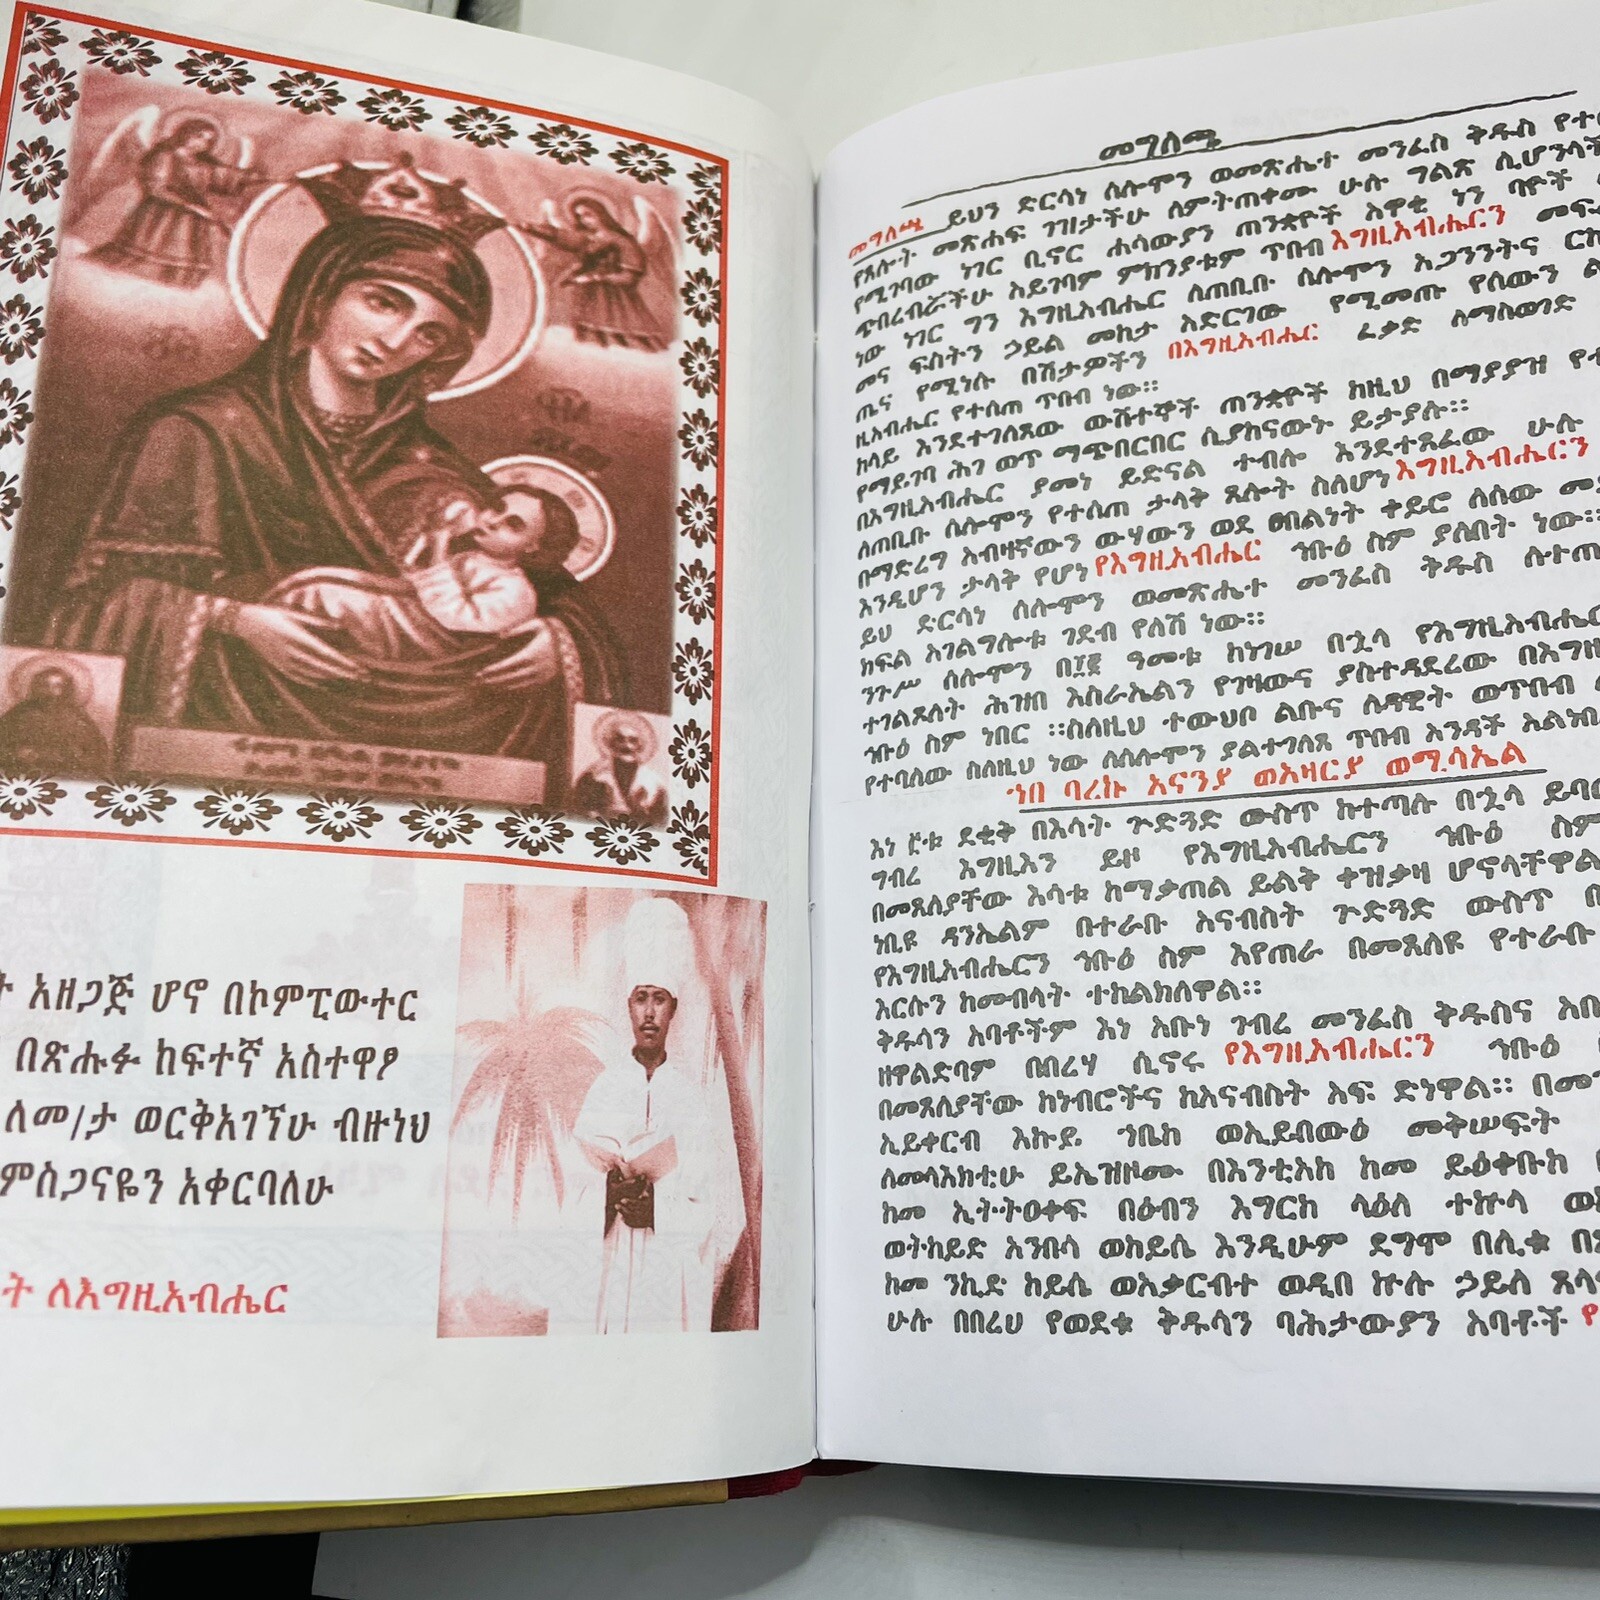 ት አዘጋጅ ሆኖ በኮምፒውተር
በጽሑፉ ከፍተኛ አስተዋፆ
ለመ/ታ ወርቅአገኘሁ ብዙነህ
ምስጋናዬን አቀርባለሁ
ት ለእግዚአብሔር
መግለጫ
መግለጫ ይህን ድርሳነ ሰሎሞን ወመጽሔተ መንፈስ ቅዱስ የተ
የጸሎት መጽሐፍ ገዝታችሁ ለምትጠቀሙ ሁሉ ገልጽ ሊሆንላች
የሚገባው ነገር ቢኖር ሐሳውያን ጠንቋዮች አዋቂ ነን ባዮች
ጥብረብሯችሁ አይገባም ምክንያቱም ጥበብ እግዚአብሔርን መፍ
ነው ነገር ግን እግዚአብሔር ለጠቢቡ ሰሎሞን አጋንንትና ርኩ
መና ፍስትን ኃይል መከታ አድርገው የሚመጡ የሰውን
ጤና የሚነሱ በሽታዎችን በእግዚአብሔር ፈቃድ ለማስወገድ
ዚአብሔር የተሰጠ ጥበብ ነው።
ከላይ እንደተገለጸው ውሸተኞች ጠንቋዮች ከዚህ በማያያዝ የተ
የማይገባ ሕገ ወጥ ማጭበርበር ሲያከናውኑ ይታያሉ።
በእግዚአብሔር ያመነ ይድናል ተብሎ እንደተጻፈው ሁሉ
ለጠቢቡ ሰሎሞን የተሰጠ ታላቅ ጸሎት ስለሆነ እግዚአብሔርን
በማድረግ አብዛኛውን ውሃውን ወደ ፀበልነት ቀይሮ ለሰው መ
እንዲሆን ታላቅ የሆነ የእግዚአብሔር ኅቡዕ ስም ያለበት ነው።
ይህ ድርሳነ ሰሎሞን ወመጽሔተ መንፈስ ቅዱስ ለተጠ
ክፍል አገልግሎቱ ገደብ የለሽ ነው።
ንጉሥ ሰሎሞን በ፲፪ ዓመቱ ከነገሠ በኋላ የእግዚአብሔር
ተገልጾለት ሕዝበ እስራኤልን የገዛውና ያስተዳደረው በእግዚ
ኅቡዕ ስም ነበር ።ስለዚህ ተውህቦ ልቡና ለዳዊት ወጥበብ
የተባለው ስለዚህ ነው ለሰሎሞን ያልተገለጸ ጥበብ እንዳች አልነበ
ኀበ ባረኩ አናንያ ወአዛርያ ወሚሳኤል
እነ ፫ቱ ደቂቅ በእሳት ጉድጓድ ውስጥ ከተጣሉ በኋላ ይባ
ገብረ እግዚእን ይዞ የእግዚአብሔርን ኅቡዕ ስም
በመጸለያቸው እሳቱ ከማቃጠል ይልቅ ቀዝቃዛ ሆኖላቸዋል
ነቢዩ ዳንኤልም በተራቡ አናብስት ጉድጓድ ውስጥ በ
የእግዚአብሔርን ኅቡዕ ስም እየጠራ በመጸለዩ የተራቡ
እርሱን ከመብላት ተከልክለዋል።
ቅዱሳን አባቶችም እነ አቡነ ገብረ መንፈስ ቅዱስና አቡ
ዘዋልድባም በበረሃ ሲኖሩ የእግዚአብሔርን ኅቡዕ
በመጸለያቸው ከነብሮችና ከአናብስት አፍ ድነዋል። በመ
ኢይቀርብ እኩይ ኀቤከ ወኢይብውዕ መቅሠፍት
ለመላእክቲሁ ይኤዝዞሙ በእንቲአከ ከመ ይዕቀቡከ
ከመ ኢትትዐቀፍ በዕብን እግርከ ላዕለ ተኵላ
ወትከይድ አንበሳ ወከይሴ እንዲሁም ደግሞ በሊቁ
ከመ ንኪድ ከይሴ ወአቃርብተ ወዲበ ኵሉ ኃይለ ጸላ
ሁሉ በበረሀ የወደቁ ቅዱሳን ባሕታውያን አባቶች የ